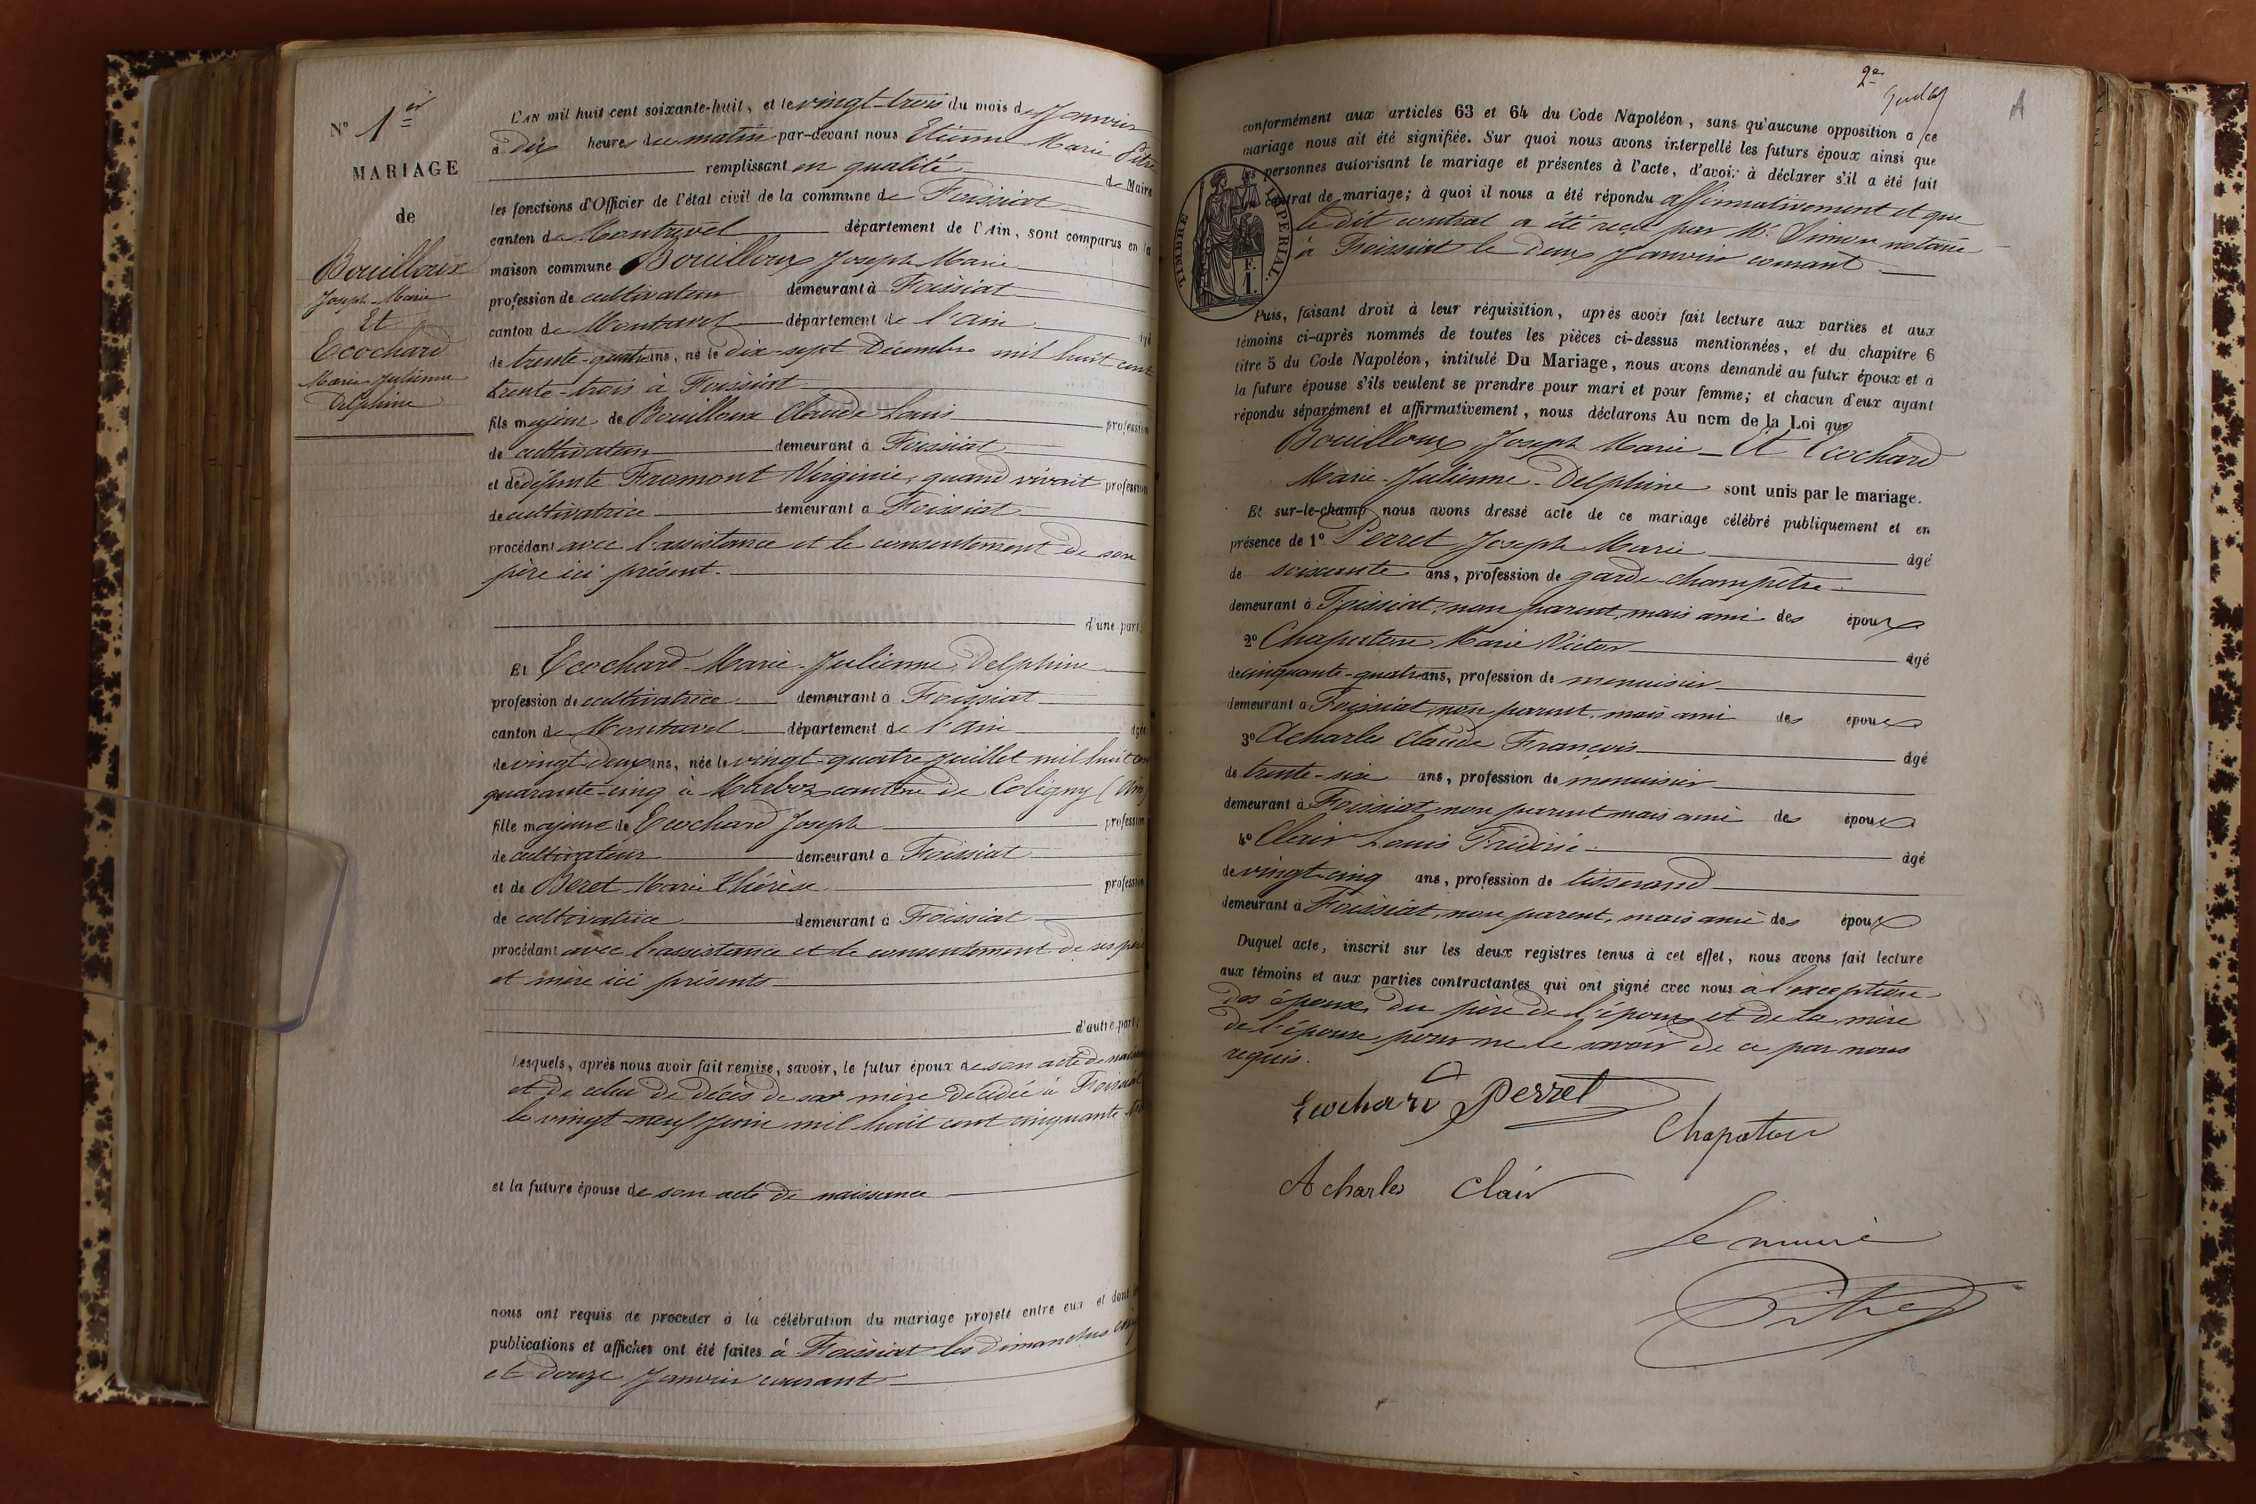 N° 1er
MARIAGE
de
Bouilloux
Joseph Marie
Et
Ecochard
Marie Julienne
Delphine
L'AN mil huit cent soixante-huit, et le vingt-trois du mois de Janvier
à dix heures du matin par-devant nous Etienne Marie Pitre
remplissant en qualité de Maire
les fonctions d'Officier de l'état civil de la commune de Foissiat
canton de Montrevel département de l'Ain, sont comparus en la
maison commune Bouilloux Joseph Marie
profession de cultivateur demeurant à Foissiat
canton de Montrevel département de l'ain âgé
de trente-quatre ans, né le dix-sept Décembre mil huit cent
trente-trois à Foissiat
fils majeur de Bouilloux Claude Louis profession
de cultivateur demeurant à Foissiat
et de défunte Fromont Virginie, quand vivait profession
de cultivatrice demeurant à Foissiat
procédant avec l'assistance et le consentement de son
père ici présent.
d'une part,
Et Ecochard Marie-Julienne Delphine
profession de cultivatrice demeurant à Foissiat
canton de Montrevel département de l'ain âgée
de vingt-deux ans, née le vingt-quatre juillet mil huit cent
quarante-cinq à Marboz canton de Coligny (Ain)
fille majeure de Ecochard Joseph profession
de cultivateur demeurant à Foissiat
et de Beret Marie Thérèse profession
de cultivatrice demeurant à Foissiat
procédant avec l'assistance et le consentement de ses père
et mère ici présents
d'autre part;
Lesquels, après nous avoir fait remise, savoir, le futur époux de son acte de naissance
et de celui de décès de sa mère décédée à Foissiat
le vingt-neuf Juin mil huit cent cinquante
et la future épouse de son acte de naissance
nous ont requis de procéder à la célébration du mariage projeté entre eux et dont les
publications et affiches ont été faites à Foissiat les dimanches cinq
et douze Janvier courant
2e
conformément aux articles 63 et 64 du Code Napoléon, sans qu'aucune opposition à ce
mariage nous ait été signifiée. Sur quoi nous avons interpellé les futurs époux ainsi que
les personnes autorisant le mariage et présentes à l'acte, d'avoir à déclarer s'il a été fait
contrat de mariage; à quoi il nous a été répondu affirmativement et que
le dit contrat a été reçu par Me Simon notaire
à Foissiat le deux Janvier courant
TIMBRE IMPERIAL.
F.
1.
Puis, faisant droit à leur réquisition, après avoir fait lecture aux parties et aux
témoins ci-après nommés de toutes les pièces ci-dessus mentionnées, et du chapitre 6
titre 5 du Code Napoléon, intitulé Du Mariage, nous avons demandé au futur époux et à
la future épouse s'ils veulent se prendre pour mari et pour femme; et chacun d'eux ayant
répondu séparément et affirmativement, nous déclarons Au nom de la Loi que
Bouilloux Joseph Marie Et Ecochard
Marie-Julienne-Delphine sont unis par le mariage.
Et sur-le-champ nous avons dressé acte de ce mariage célébré publiquement et en
présence de 1° Perret Joseph Marie âgé
de soixante ans, profession de garde-champêtre
demeurant à Foissiat, non parent, mais ami des époux
2° Chapateau Marie Victor âgé
de cinquante-quatre ans, profession de menuisier
demeurant à Foissiat, non parent, mais ami des époux
3° Acharles Claude François âgé
de trente-six ans, profession de menuisier
demeurant à Foissiat non parent mais ami des époux
4° Clair Louis Frédéric âgé
de vingt-cinq ans, profession de tisserand
demeurant à Foissiat, non parent, mais ami des époux
Duquel acte, inscrit sur les deux registres tenus à cet effet, nous avons fait lecture
aux témoins et aux parties contractantes qui ont signé avec nous à l'exception
des époux, du père de l'époux et de la mère
de l'épouse pour ne le savoir de ce par nous
requis.
Ecochard Perret
Chapateau
Acharles Clair
Le maire
Pitre